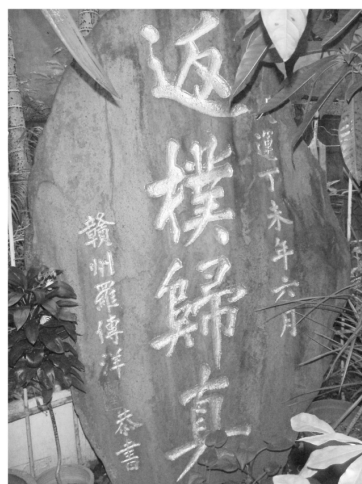 運丁未年六月
返樸歸真
贛州羅傳洋 恭書